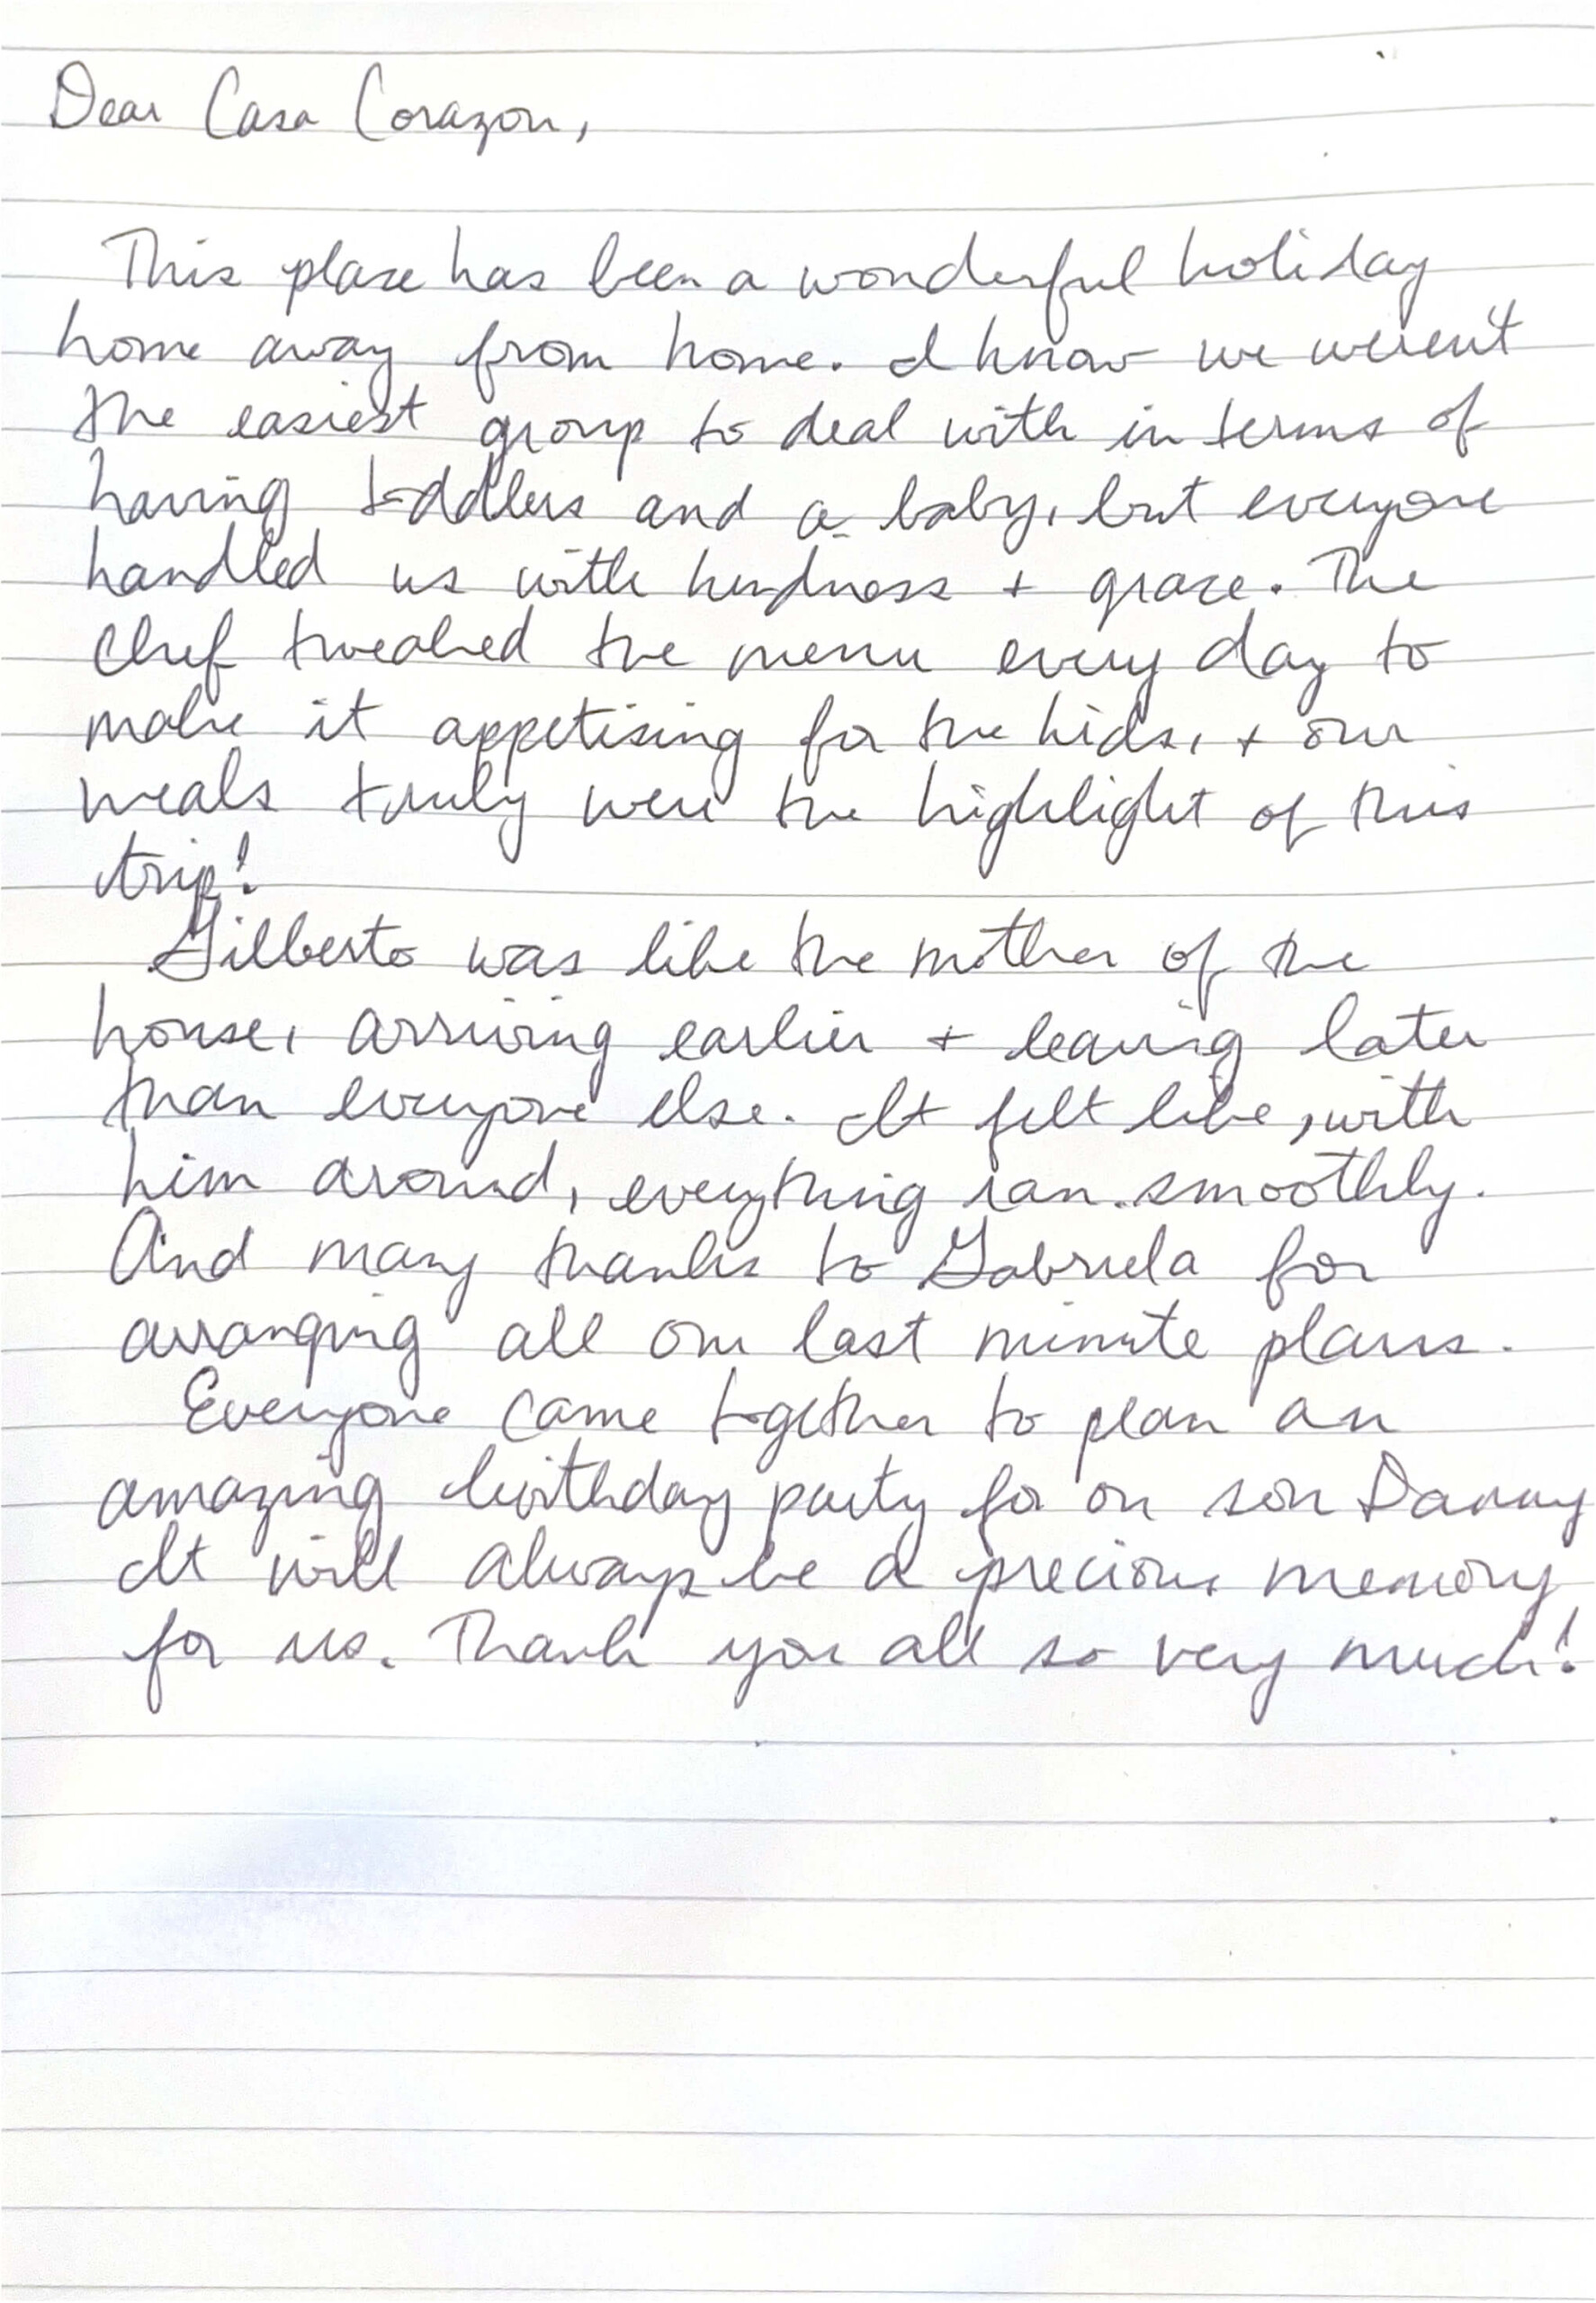 Dear Casa Corazon,
This place has been a wonderful holiday
home away from home. I know we weren't
the easiest group to deal with in terms of
having toddlers and a baby, but everyone
handled us with kindness + grace. The
chef tweaked the menu every day to
make it appetising for the kids, + our
meals truly were the highlight of this
trip!
Gilberto was like the mother of the
house, arriving earlier + leaving later
than everyone else. It felt like, with
him around, everything ran smoothly.
And many thanks to Gabriela for
arranging all our last minute plans.
Everyone came together to plan an
amazing birthday party for our son Danny
It will always be a precious memory
for us. Thank you all so very much!